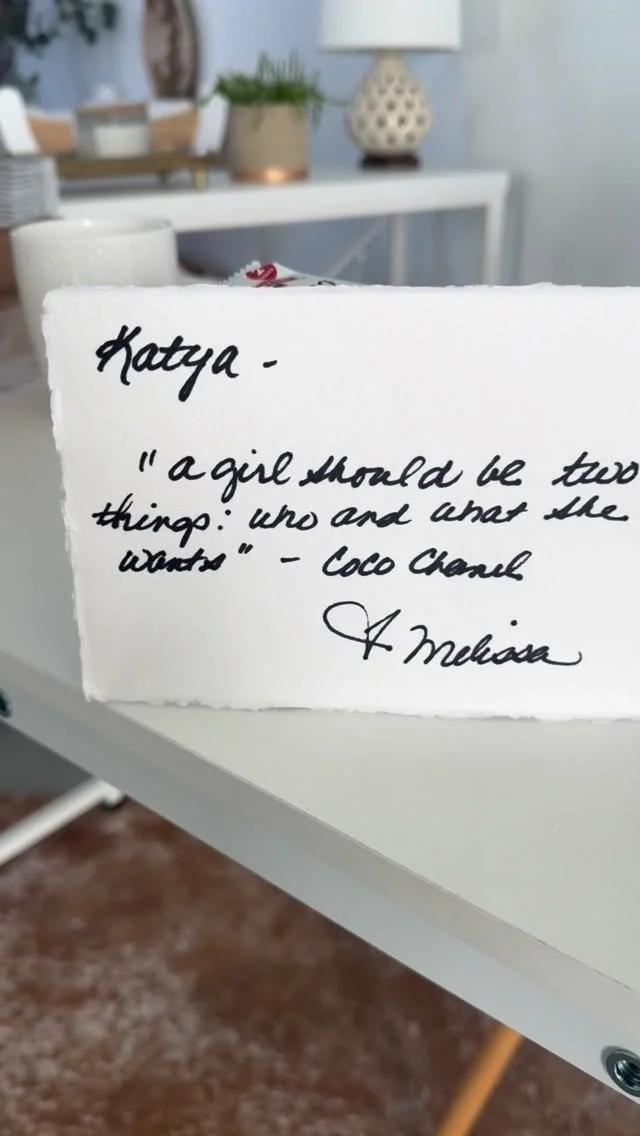 Katya -
" a girl should be two
things: who and what she
wants" - Coco Chanel
Melissa